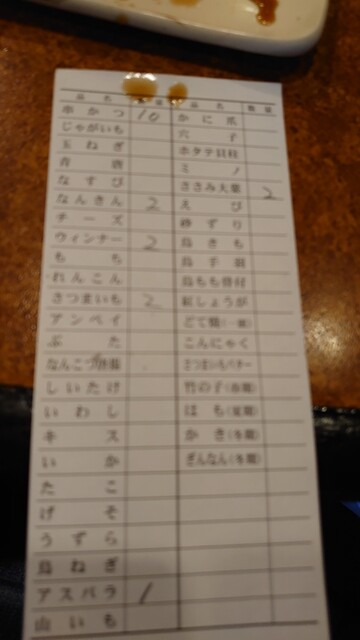 品名 数量 品名 数量
串かつ 10 かに爪
じゃがいも 穴子
玉ねぎ ホタテ貝柱
青唐 ミノ
なすび ささみ大葉 2
なんきん 2 えび
チーズ 砂ずり
ウィンナー 2 鳥きも
もち 鳥手羽
れんこん 鳥もも骨付
さつまいも 2 紅しょうが
アンペイ どて焼(一皿)
ぶた こんにゃく
なんこつ さつまいもバター
しいたけ 竹の子(春期)
いわし はも(夏期)
キス かき(冬期)
いか ぎんなん(冬期)
たこ
げそ
うずら
鳥ねぎ
アスパラ 1
山いも